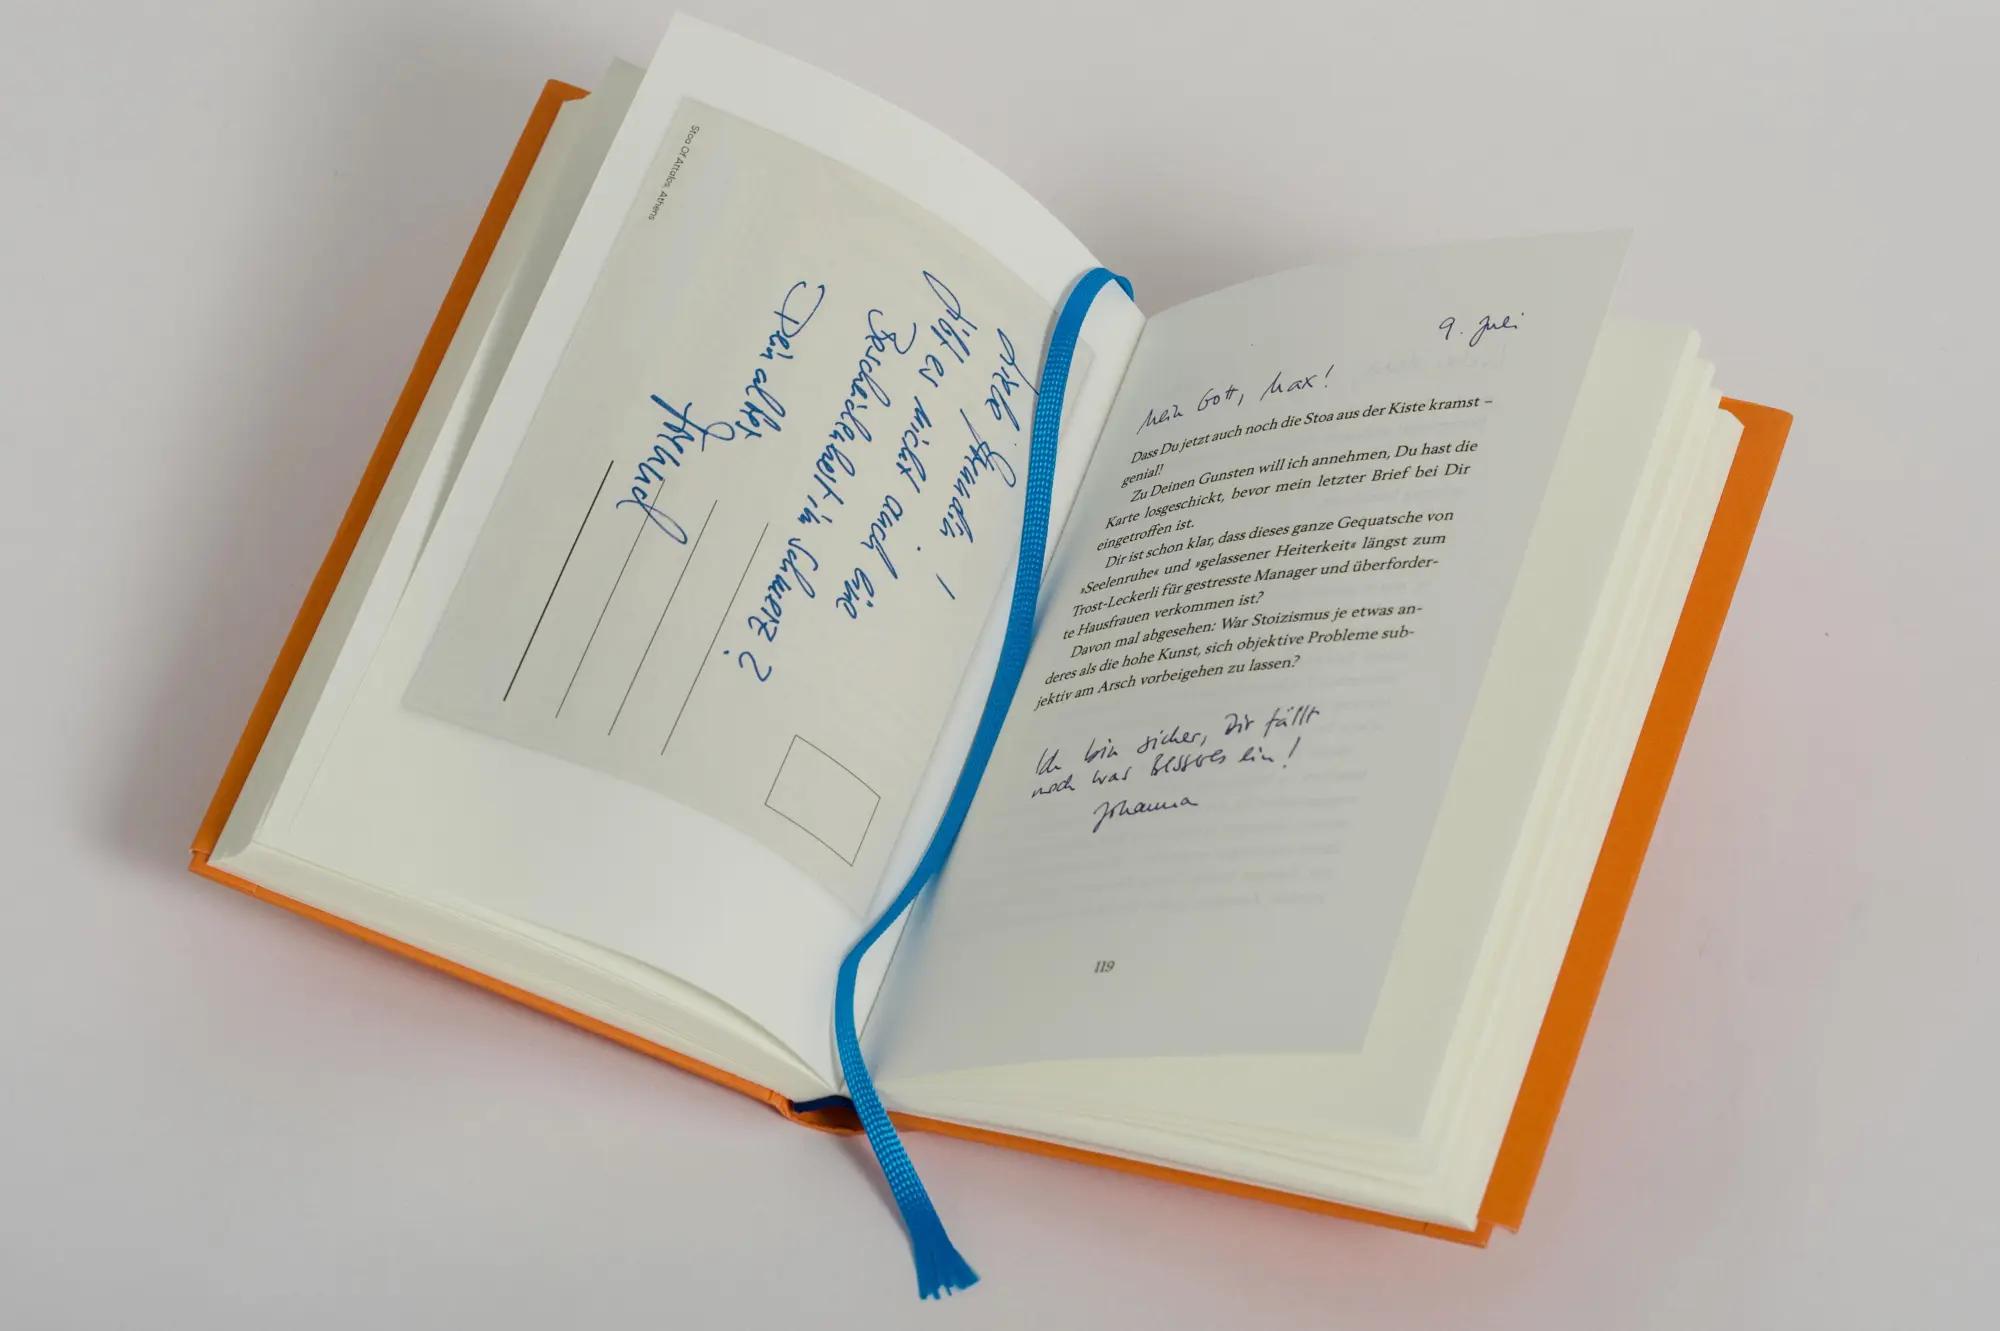 Stoa Of Attalos, Athens
Freundin!
Gibt es nicht auch eine
Bescheidenheit im Schmerz?
Dein alter
Freund
9. Juli
Mein Gott, Max!
Dass Du jetzt auch noch die Stoa aus der Kiste kramst –
genial!
Zu Deinen Gunsten will ich annehmen, Du hast die
Karte losgeschickt, bevor mein letzter Brief bei Dir
eingetroffen ist.
Dir ist schon klar, dass dieses ganze Gequatsche von
»Seelenruhe« und »gelassener Heiterkeit« längst zum
Trost-Leckerli für gestresste Manager und überforder-
te Hausfrauen verkommen ist?
Davon mal abgesehen: War Stoizismus je etwas an-
deres als die hohe Kunst, sich objektive Probleme sub-
jektiv am Arsch vorbeigehen zu lassen?
Ich bin sicher, Dir fällt
noch was Besseres ein!
Johanna
119